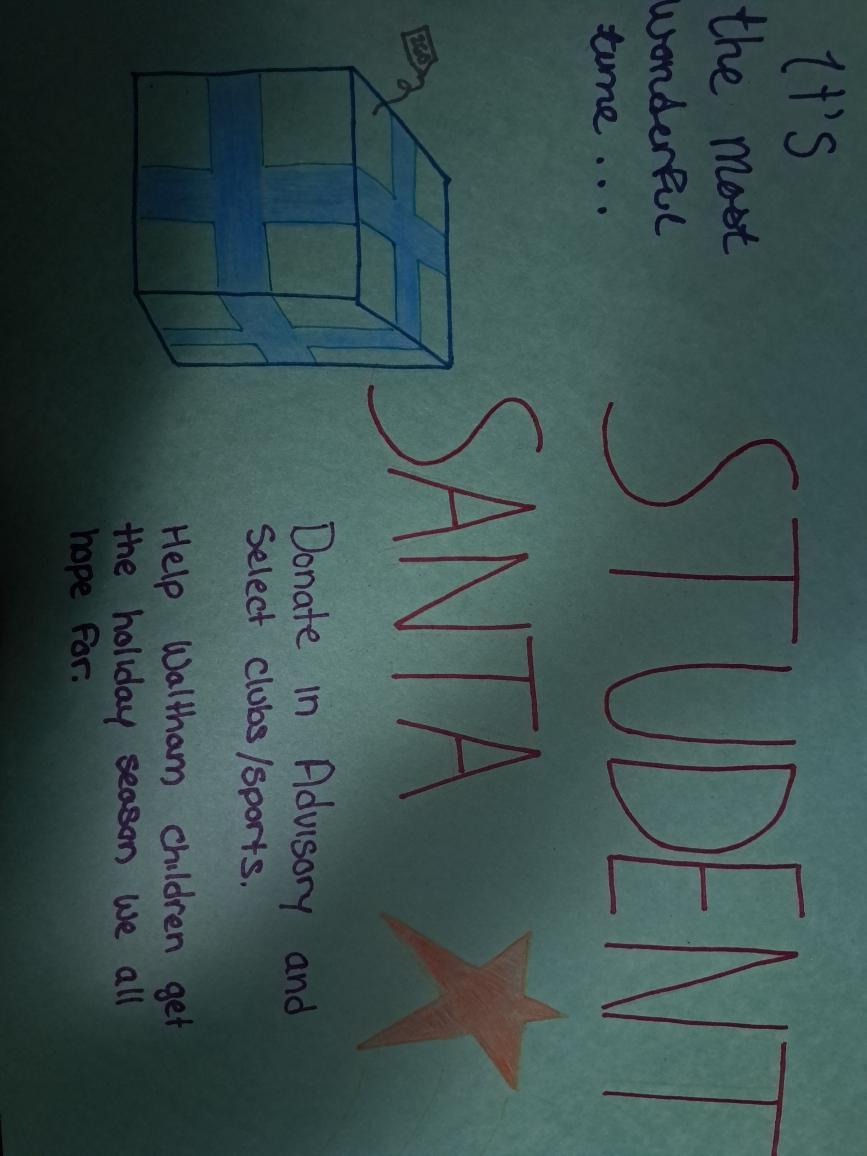 It's
the most
wonderful
time...
STUDENT
SANTA
Donate in Advisory and
Select clubs/sports.
Help Waltham children get
the holiday season we all
hope for.